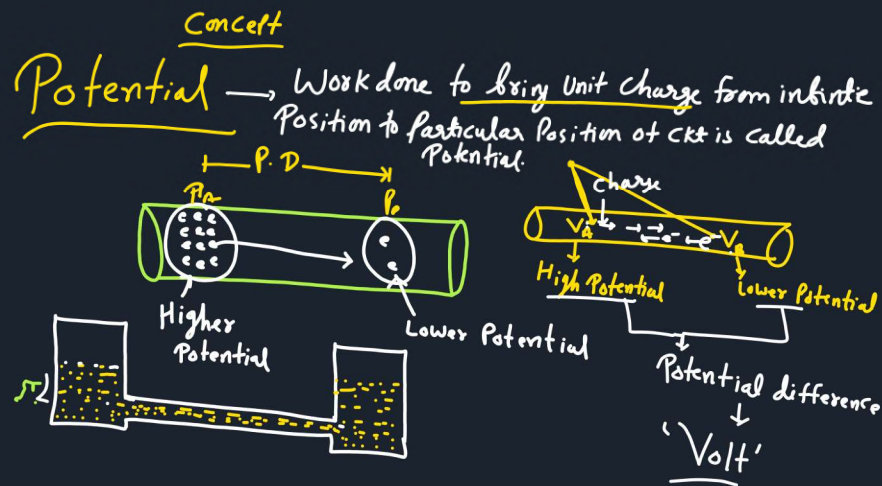 Concept
Potential → Work done to bring Unit Charge from infinite
Position to Particular Position of ckt is called
Potential.
P.D
Higher
Potential
Lower Potential
charge
V_A
V_B
e⁻
High Potential
Lower Potential
Potential difference
'Volt'